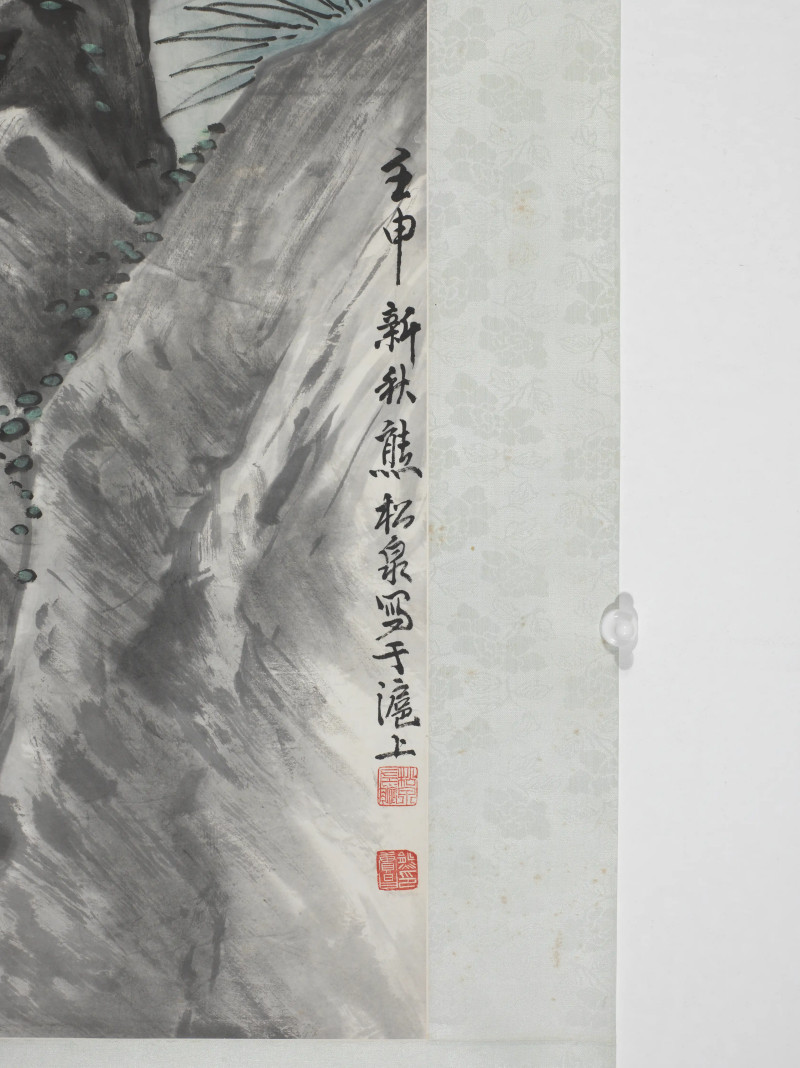 壬申新秋熊松泉写于滬上